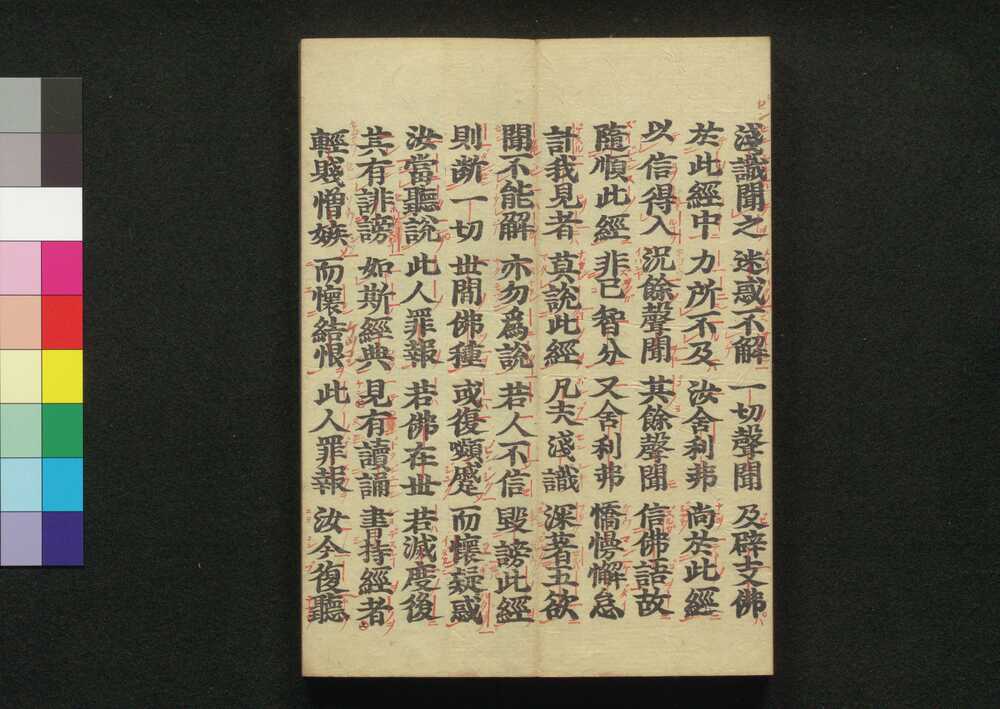 淺識聞之 迷惑不解 一切聲聞 及辟支佛
於此經中 力所不及 汝舍利弗 尚於此經
以信得入 況餘聲聞 其餘聲聞 信佛語故
隨順此經 非己智分 又舍利弗 憍慢懈怠
計我見者 莫說此經 凡夫淺識 深著五欲
聞不能解 亦勿爲說 若人不信 毀謗此經
則斷一切 世間佛種 或復嚬蹙 而懷疑惑
汝當聽說 此人罪報 若佛在世 若滅度後
其有誹謗 如斯經典 見有讀誦 書持經者
輕賤憎嫉 而懷結恨 此人罪報 汝今復聽